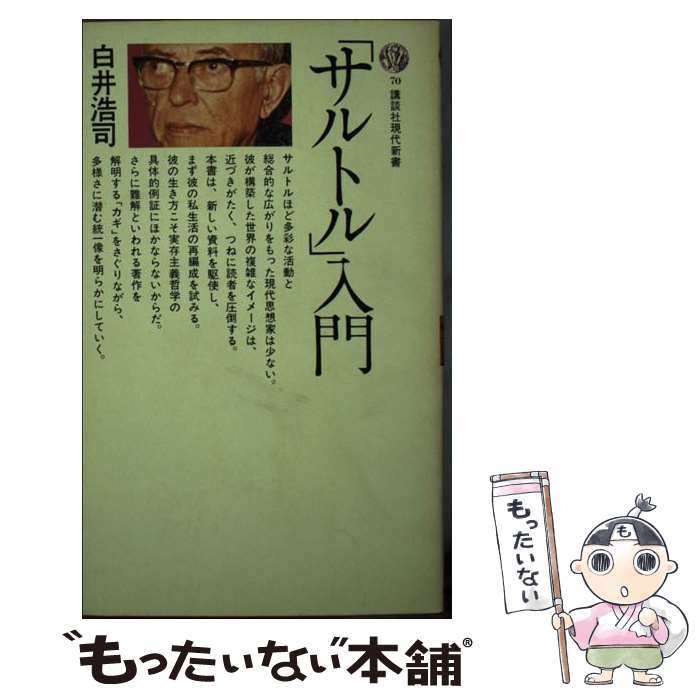 70 講談社現代新書
「サルトル」入門
白井浩司
サルトルほど多彩な活動と
総合的な広がりをもった現代思想家は少ない。
彼が構築した世界の複雑なイメージは、
近づきがたく、つねに読者を圧倒する。
本書は、新しい資料を駆使し、
まず彼の私生活の再編成を試みる。
彼の生き方こそ実存主義哲学の
具体的例証にほかならないからだ。
さらに難解といわれる著作を
解明する「カギ」をさぐりながら、
多様さに潜む統一像を明らかにしていく。
もったいない
も
"もったいない"本舗